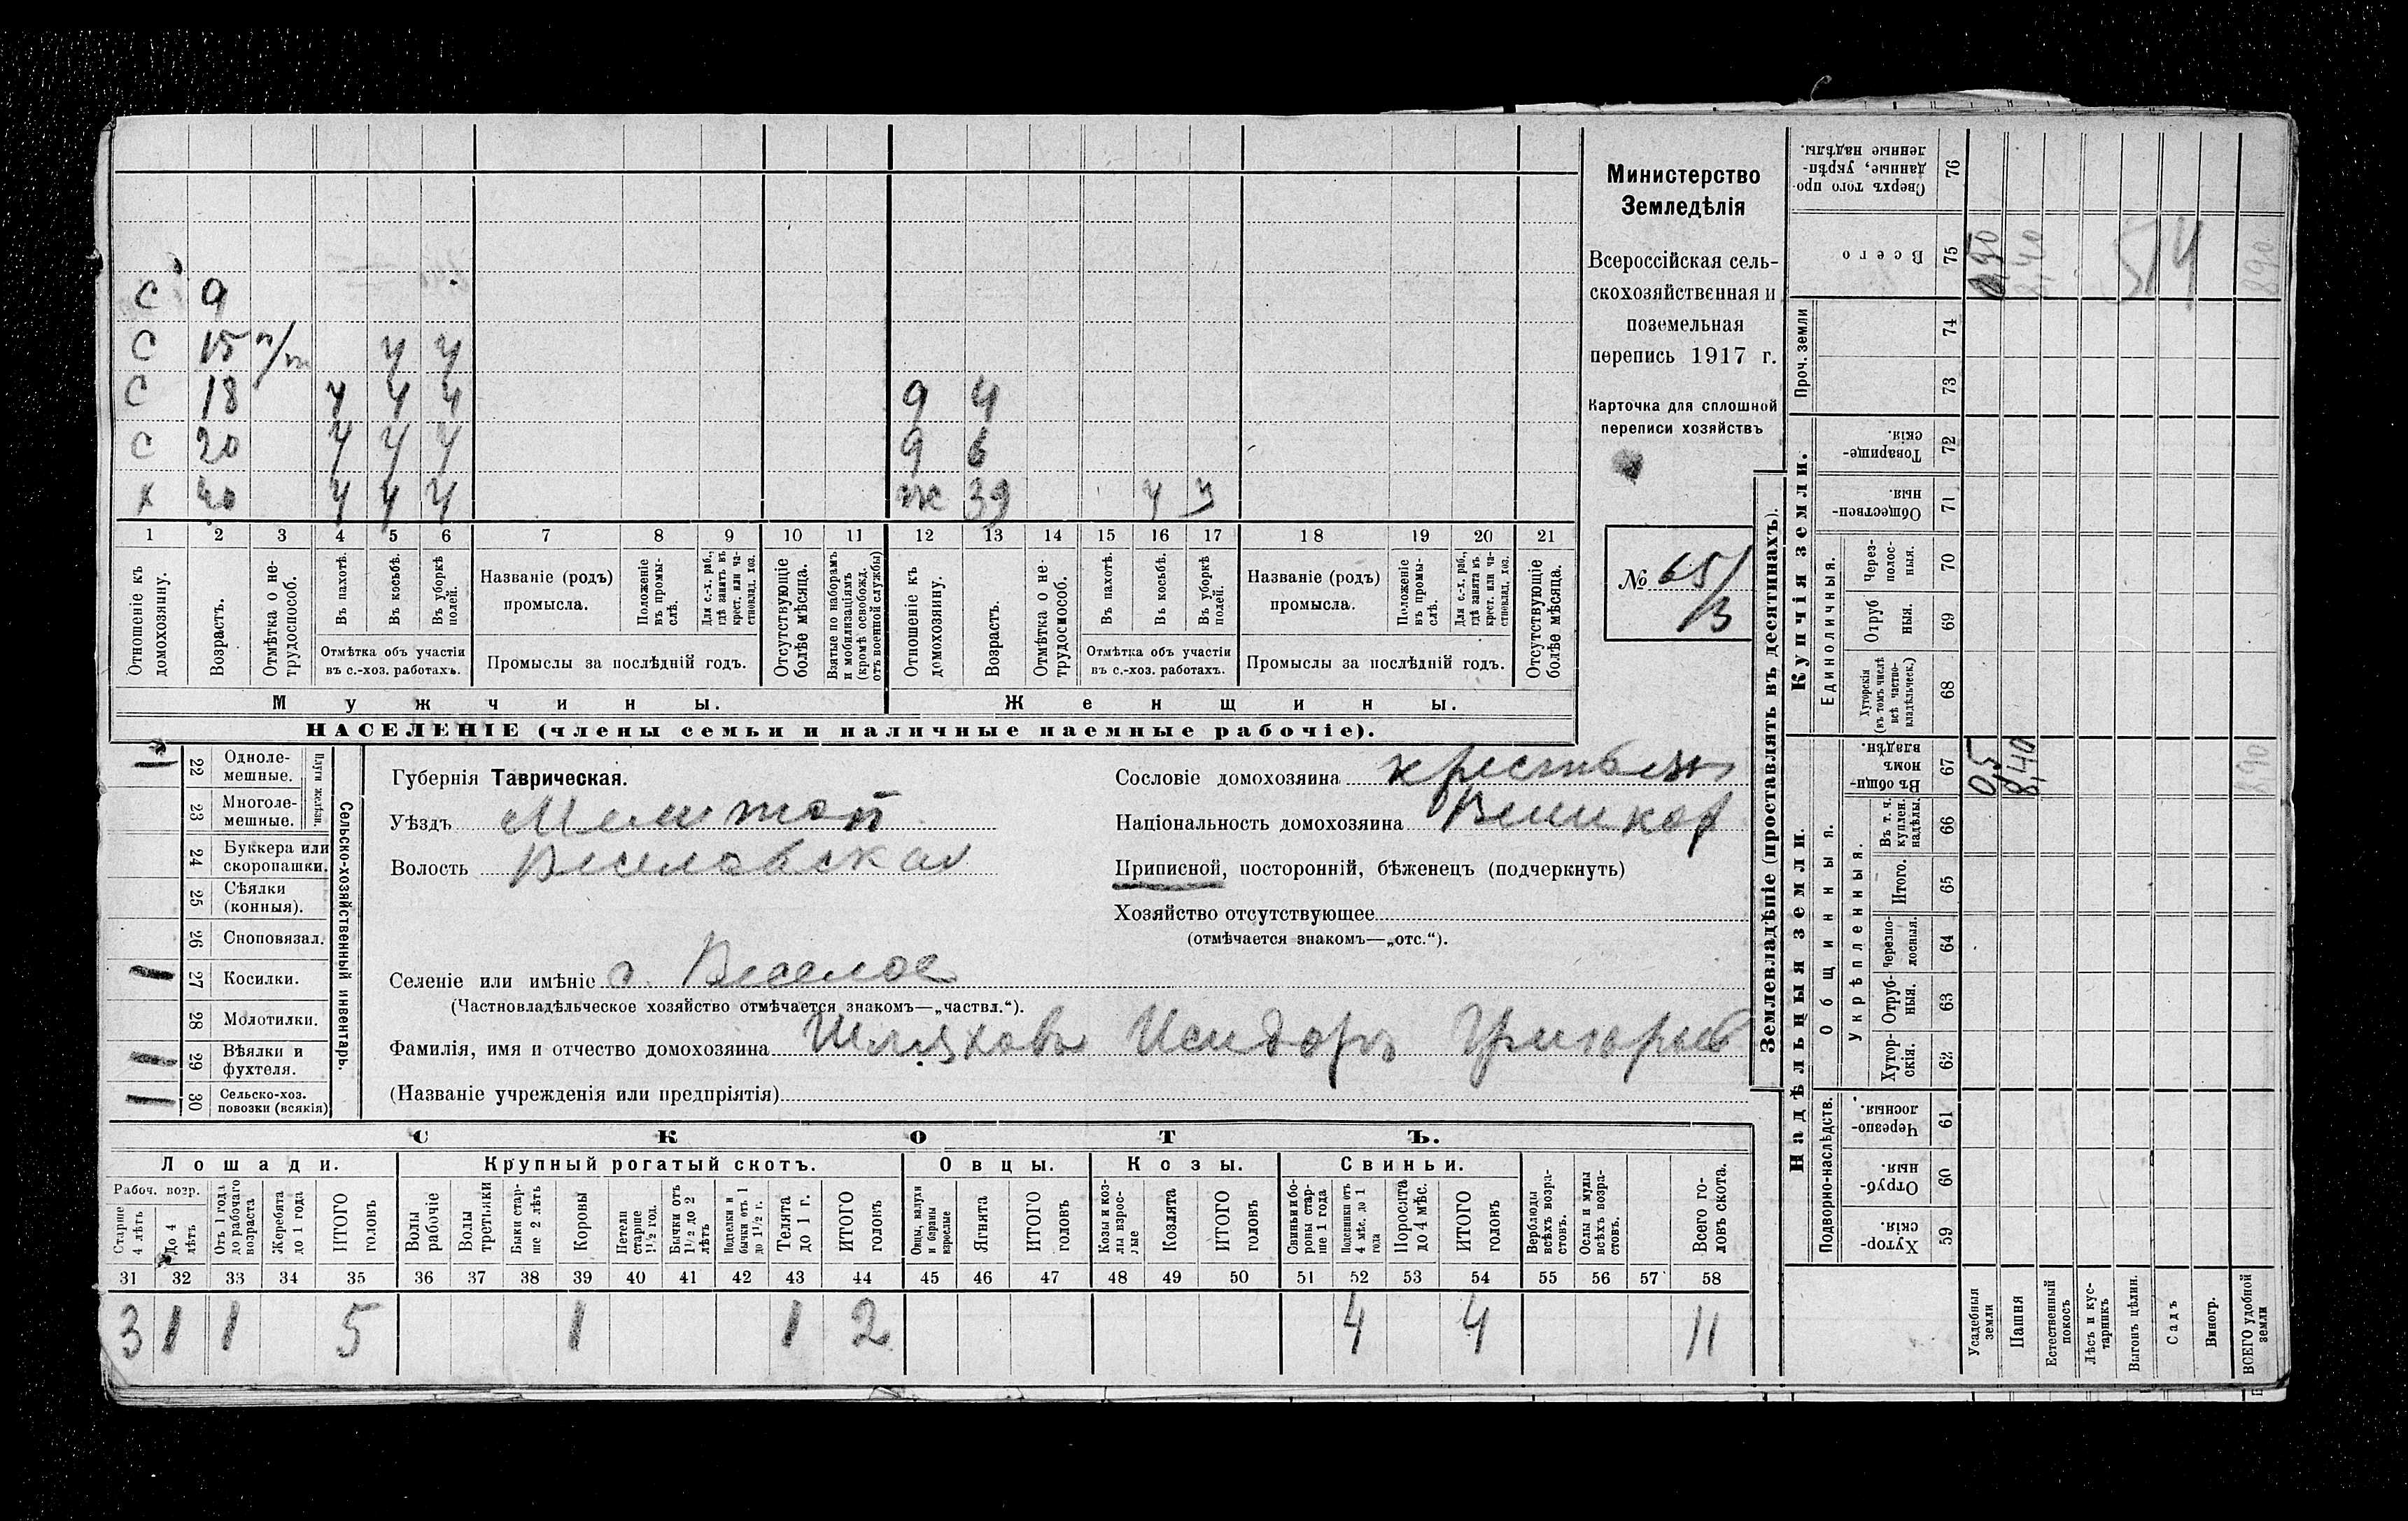 С 9
С 15 п/п ч ч
С 18 ч ч ч 9 4
С 20 ч ч ч 9 6
х 40 ч ч ч ж 39 ч ч
1 2 3 4 5 6 7 8 9 10 11 12 13 14 15 16 17 18 19 20 21
Отношеніе къ домохозяину.
Возрастъ.
Отмѣтка о не-трудоспособ.
Въ пахотѣ.
Въ косьбѣ.
Въ уборкѣ полей.
Отмѣтка объ участіи въ с.-хоз. работахъ.
Названіе (родъ) промысла.
Положеніе въ промы-слѣ.
Для с.-х. раб., гдѣ занятъ въ крест. или ча-стновлад. хоз.
Промыслы за послѣдній годъ.
Отсутствующіе болѣе мѣсяца.
Взятые по наборамъ и мобилизаціямъ (кромѣ освобожд. отъ военной службы)
Отношеніе къ домохозяину.
Возрастъ.
Отмѣтка о не-трудоспособ.
Въ пахотѣ.
Въ косьбѣ.
Въ уборкѣ полей.
Отмѣтка объ участіи въ с.-хоз. работахъ.
Названіе (родъ) промысла.
Положеніе въ промы-слѣ.
Для с.-х. раб., гдѣ заняты въ крест. или ча-стновлад. хоз.
Промыслы за послѣдній годъ.
Отсутствующіе болѣе мѣсяца.
Мужчины. Женщины.
НАСЕЛЕНІЕ (члены семьи и наличные наемные рабочіе).
Министерство
Земледѣлія
Всероссійская сель-
скохозяйственная и
поземельная
перепись 1917 г.
Карточка для сплошной
переписи хозяйствъ
№ 65/
13
Сельско-хозяйственный инвентарь.
Плуги желѣзн.
1 22 Однолемешные.
23 Многолемешные.
24 Буккера или скоропашки.
25 Сѣялки (конныя).
26 Сноповязал.
1 27 Косилки.
28 Молотилки.
1 29 Вѣялки и фухтеля.
1 30 Сельско-хоз. повозки (всякія)
Губернія Таврическая.
Уѣздъ Мелитоп
Волость Веселовская
Селеніе или имѣніе с. Веселое
(Частновладѣльческое хозяйство отмѣчается знакомъ—„частвл.“).
Фамилія, имя и отчество домохозяина Шляховъ Исидоръ Григорьев
(Названіе учрежденія или предпріятія)
Сословіе домохозяина крестьян
Національность домохозяина Великор
Приписной, посторонній, бѣженецъ (подчеркнуть)
Хозяйство отсутствующее
(отмѣчается знакомъ—„отс.“).
СКОТЪ.
Лошади. Крупный рогатый скотъ. Овцы. Козы. Свиньи.
Рабоч. возр.
Старше 4 лѣтъ
До 4 лѣтъ
Отъ 1 года до рабочаго возраста
Жеребята до 1 года
ИТОГО головъ
Волы рабочіе
Волы третьяки
Быки стар-ше 2 лѣтъ
Коровы
Нетели старше 1½ год.
Бычки отъ 1½ до 2 лѣтъ
Подтелки и бычки отъ 1 до 1½ г.
Телята до 1 г.
ИТОГО головъ
Овцы, валухи и бараны взрослые
Ягнята
ИТОГО головъ
Козы и коз-лы взрос-лые
Козлята
ИТОГО головъ
Свиньи и бо-ровы стар-ше 1 года
Подсвинки отъ 4 мѣс. до 1 года
Поросята до 4 мѣс.
ИТОГО головъ
Верблюды всѣхъ возра-стовъ.
Ослы и мулы всѣхъ возра-стовъ.
Всего го-ловъ скота.
31 32 33 34 35 36 37 38 39 40 41 42 43 44 45 46 47 48 49 50 51 52 53 54 55 56 57 58
3 1 1 5 1 1 2 4 4 11
Землевладѣніе (проставлять въ десятинахъ).
Надѣльныя земли. Купчія земли. Проч. земли
Подворно-наслѣдств.
Общинныя.
Укрѣпленныя.
Единоличныя.
Сверхъ того про-данные, укрѣп-ленные надѣлы. 76
Всего 75 0,50 8,40 514 890
74
73
Товарище-скія. 72
Обществен-ныя. 71
Через-полос-ныя. 70
Отруб ныя. 69
Хуторскія (въ томъ числѣ всѣ частно-владѣльческ.) 68
Въ общин-номъ владѣн. 67 0,5 8,40 890
Въ т. ч. куплен. надѣлы. 66
Итого. 65
Черезпо-лосныя. 64
Отруб-ныя. 63
Хутор-скія. 62
Черезпо-лосныя. 61
Отруб-ныя. 60
Хутор-скія. 59
Усадебныя земли
Пашня
Естественный покосъ
Лѣсъ и кус-тарникъ
Выгонъ цѣлин.
Садъ
Виногр.
ВСЕГО удобной земли